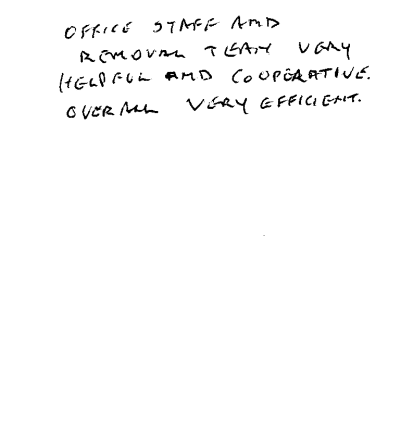 OFFICE STAFF AND
REMOVAL TEAM VERY
HELPFUL AND COOPERATIVE.
OVERALL VERY EFFICIENT.